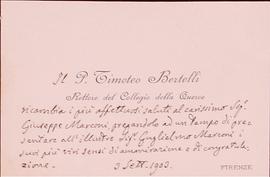 Il P. Timoteo Bertelli
Rettore del Collegio della Querce
ricambia i più affettuosi saluti al carissimo Sig.
Giuseppe Marconi, pregandolo ad un tempo di pre-
sentare all'illustre Sig. Guglielmo Marconi i
suoi più vivi sensi di ammirazione e di congratula-
zione.
3 Sett. 1903.
FIRENZE